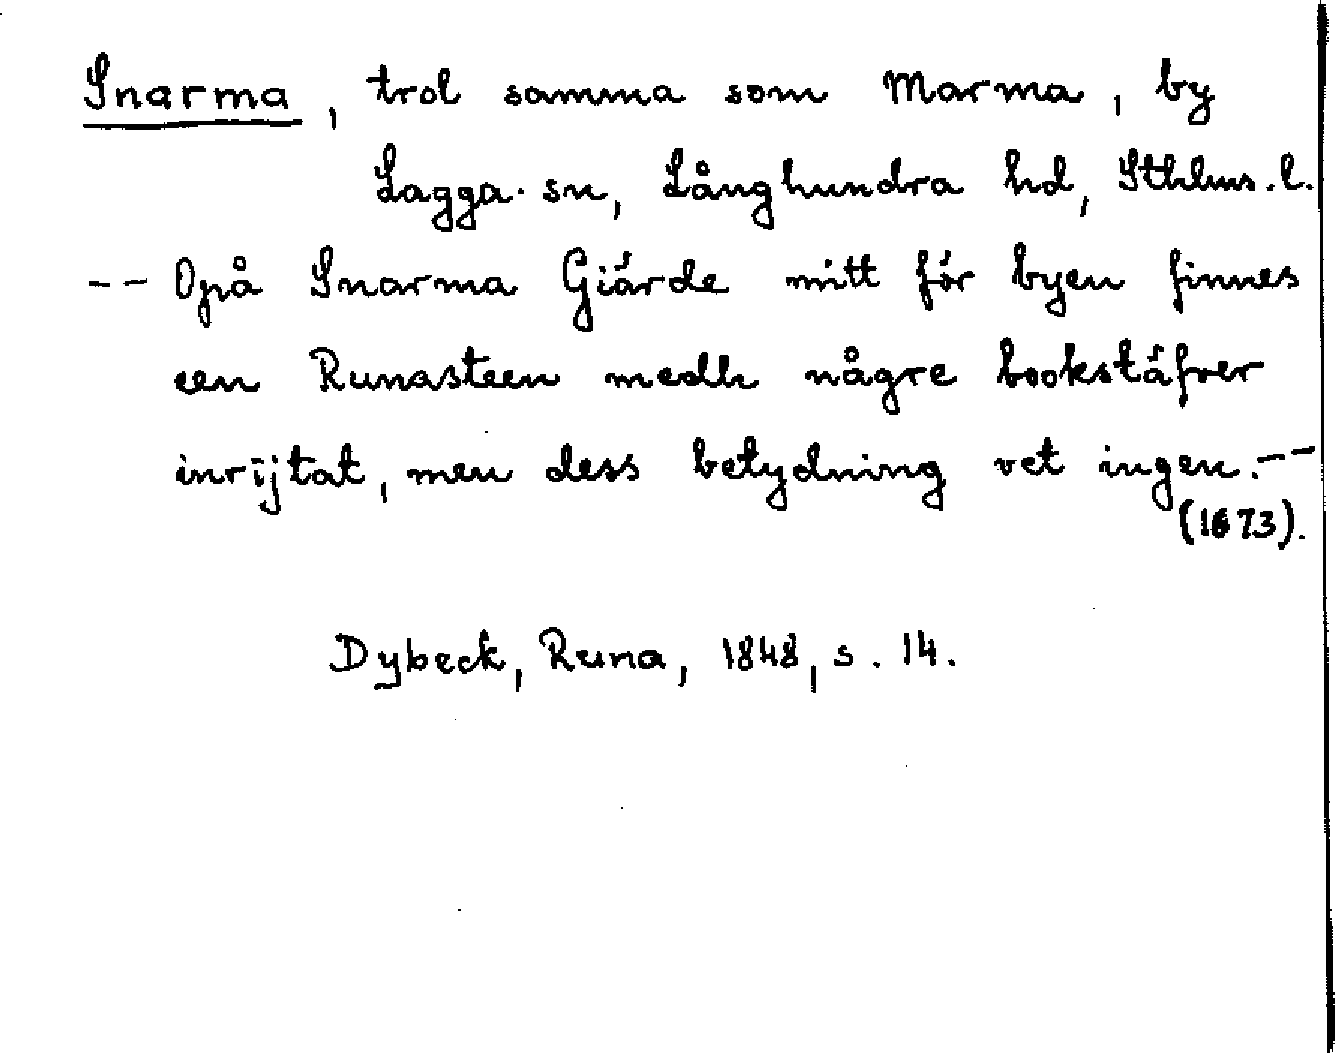 Snarma, trol samma som Marma, by
Lagga sn, Långhundra hd, Sthlms. l.
-- Opå Snarma Giärde mitt för byen finnes
een Runasteen medh någre bookstäfver
inrijtat, men dess betydning vet ingen. --
(1673).
Dybeck, Runa, 1848, s. 14.